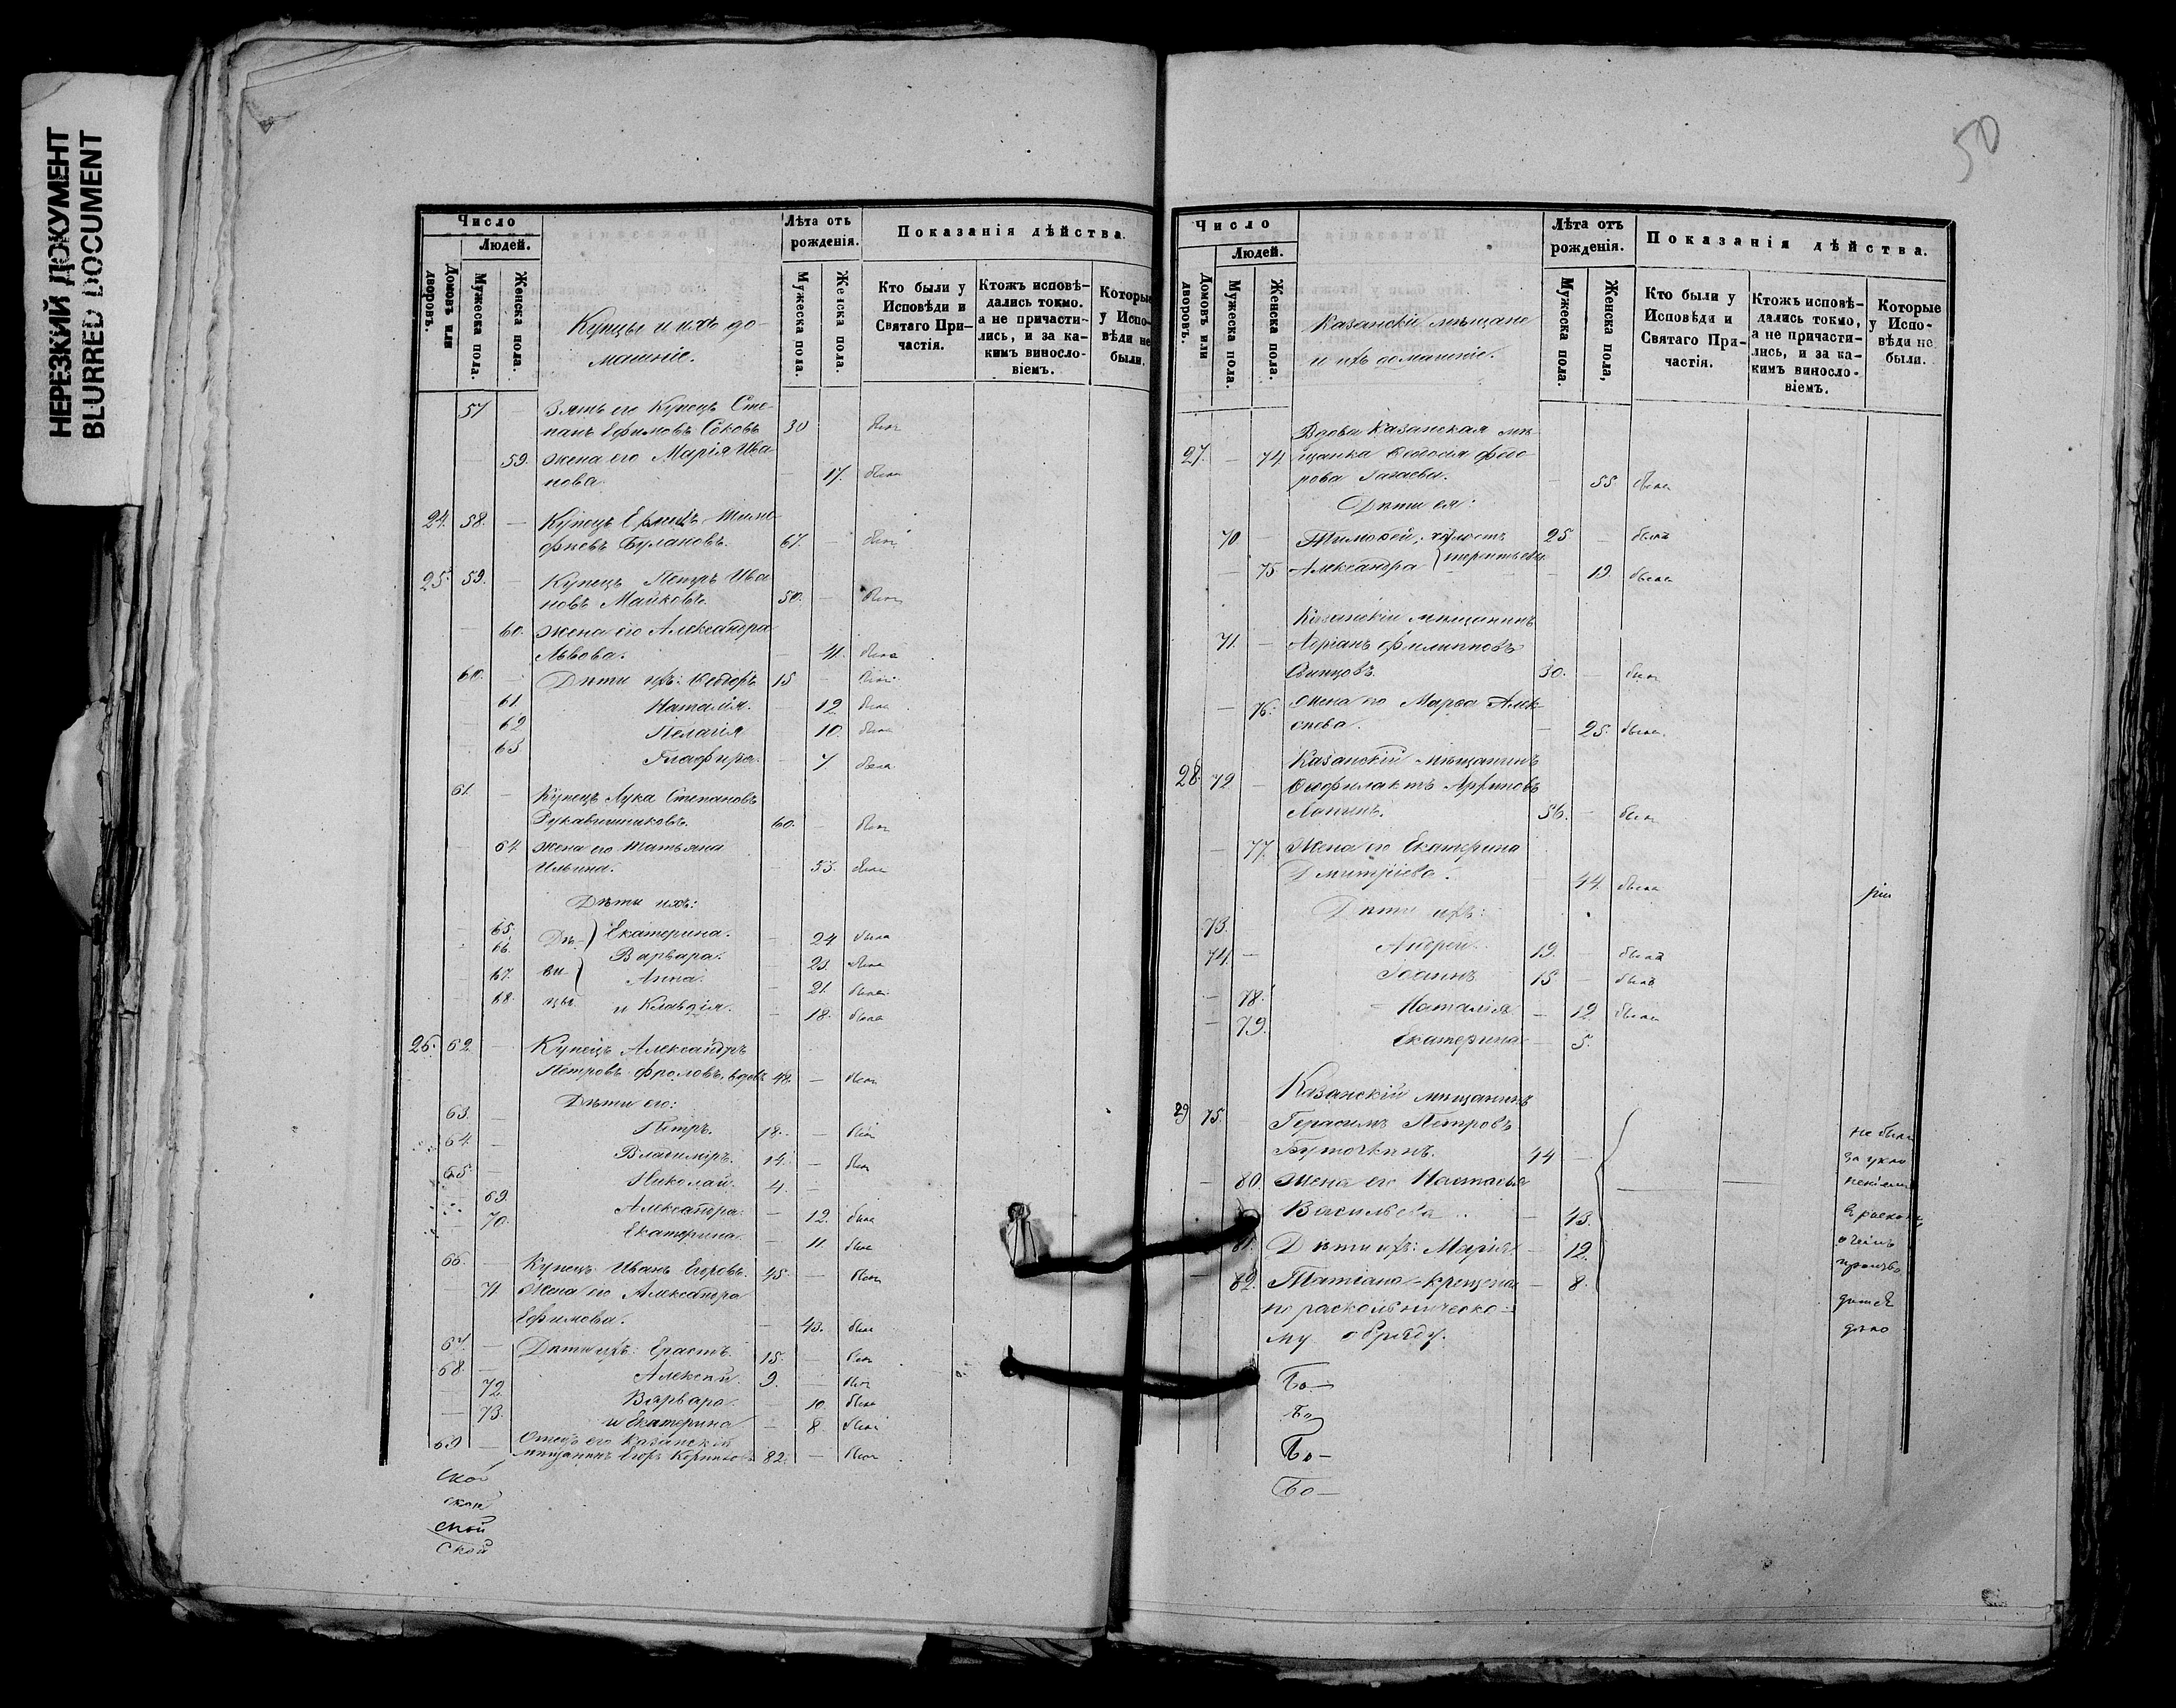 НЕРЕЗКИЙ ДОКУМЕНТ
BLURRED DOCUMENT
Число
Людей.
Домовъ или дворовъ.
Мужеска пола.
Женска пола.
Купцы и ихъ до-
машніе.
Лѣта отъ
рожденія.
Мужеска пола.
Женска пола.
Показанія дѣйства.
Кто были у
Исповѣди и
Святаго При-
частія.
Ктожъ исповѣ-
дались токмо.
а не причасти-
лись, и за ка-
кимъ винослo-
віемъ.
Которые
у Испо-
вѣди не
были.
57 — Зять его Купецъ Сте-
панъ Ефимовъ 30 былъ
— 59. жена его Марія Ива
нова — 17. была
24. 58. — Купецъ Тимо-
феевъ Булановъ. 67. — былъ
25. 59. — Купецъ Петръ Ива
новъ Майковъ. 50. — былъ
— 60. жена его Александра
Львова. — 41. была
60. — Дѣти ихъ: Ѳедоръ 15 — былъ
61. Наталія. — 12 была
62 Пелагія — 10. была
63 Глафира. — 7 была
61. — Купецъ Лука Степановъ
Рукавишниковъ. 60. — былъ
— 64 жена его Татьяна
Ильина. — 53. была
Дѣти ихъ:
— 65. Дѣ- Екатерина. — 24 была
66. Варвара. — 23. была
67. ви- Анна. — 21. была
68. цы и Клавдія. — 18. была
26. 62 — Купецъ Александръ
Петровъ Фроловъ, вдовъ 48. — былъ
Дѣти его:
63. — Петръ. 18. — былъ
64. — Владиміръ. 14. — былъ
65 — Николай. 4. —
— 69. Александра. — 12. была
— 70. Екатерина. — 11. была
66. — Купецъ Иванъ Егоровъ. 45. — былъ
— 71 Жена его Александра
Ефимова. — 43. была
67. — Дѣти ихъ: Ерастъ. 15. — былъ
68. — Алексѣй. 9. — былъ
— 72. Варвара. — 10. была
— 73. и Екатерина — 8 была
69 — Отецъ его Казанскій
мѣщанинъ Егоръ 82. — былъ
ской
ской
ской
ской
50
Число
Людей.
Домовъ или дворовъ.
Мужеска пола.
Женска пола.
Казанскіе мѣщане
и ихъ домашніе.
Лѣта отъ
рожденія.
Мужеска пола.
Женска пола,
Показанія дѣйства.
Кто были у
Исповѣди и
Святаго При-
частія.
Ктожъ исповѣ-
дались токмо,
а не причасти-
лись, и за ка-
кимъ винослo-
віемъ.
Которые
у Испо-
вѣди не
были.
Вдова Казанская мѣ-
27. — 74 щанка Ѳедосія Федо-
рова — 55. была
Дѣти ея:
70 — Тимофей, холостъ 25 — былъ
— 75 Александра — 19. была
Казанскій мѣщанинъ
71. — Адріанъ Филипповъ
30. — былъ
— 76. Жена его Марѳа Алек-
сѣева. — 25. была
Казанскій мѣщанинъ
28. 72 —
Лапинъ. 56. — былъ
— 77. Жена его Екатерина
Дмитріева. — 44. была
Дѣти ихъ:
73. Андрей. 19. — былъ
74. — Іоаннъ 15 — былъ
— 78. Наталія — 12 была
— 79. Екатерина — 5.
Казанскій мѣщанинъ
29 75. — Герасимъ Петровъ
44 —
— 80. Жена его Настасья
Васильева — 43.
81. Дѣти ихъ: Марія — 12.
— 82. Татіана — крещена — 8.
по раскольническо-
му обряду.
не были
за укло
неніемъ
въ расколъ
о чемъ
произво
дится
дѣло
Бо—
Бо
Бо—
Бо—